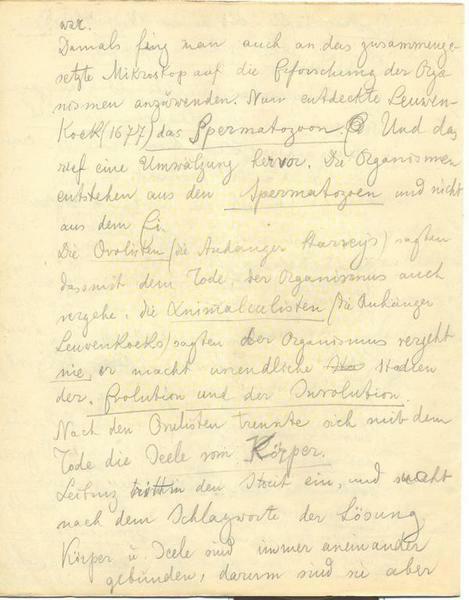 war.
Damals fing man auch an das zusammenge-
setzte Mikroskop auf die Erforschung der Orga-
nismen anzuwenden. Nun entdeckte Leuwen-
Kock (1677) das Spermatozoon. Und das
rief eine Umwälzung hervor. Die Organismen
entstehen aus den Spermatozoen und nicht
aus dem Ei.
Die Ovolisten (die Anhänger Harvey's) sagten
dass mit dem Tode, der Organismus auch
vergehe, die Animalculisten (die Anhänger
Leuwenkocks) sagten der Organismus vergeht
nie, er macht unendliche Stadien
der Evolution und der Involution.
Nach den Ovolisten trennte sich mit dem
Tode die Seele vom Körper.
Leibniz in den Streit ein, und sucht
nach dem Schlagworte der Lösung
Körper u. Seele sind immer aneinander
gebunden, darum sind sie aber